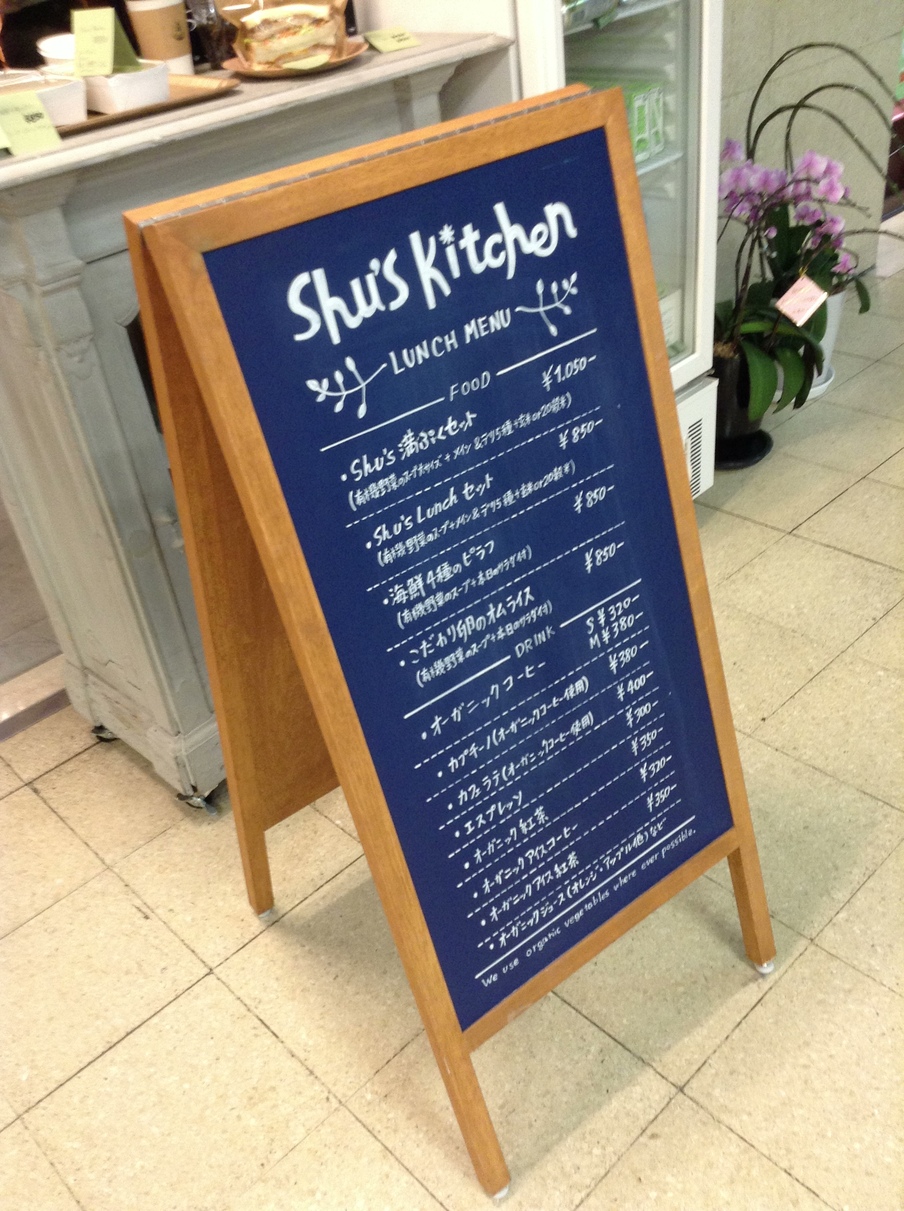 Shu's Kitchen
LUNCH MENU
FOOD
・Shu's 満ぷくセット ¥1.050-
(有機野菜のスープ大サイズ+メイン&デリ5種+玄米or20穀米)
・Shu's Lunch セット ¥850-
(有機野菜のスープ+メイン&デリ5種+玄米or20穀米)
・海鮮4種のピラフ ¥850-
(有機野菜のスープ+本日のサラダ付)
・こだわり卵のオムライス ¥850-
(有機野菜のスープ+本日のサラダ付)
DRINK
・オーガニックコーヒー S ¥320- M ¥380-
・カプチーノ(オーガニックコーヒー使用) ¥380-
・カフェラテ(オーガニックコーヒー使用) ¥400-
・エスプレッソ ¥300-
・オーガニック紅茶 ¥350-
・オーガニックアイスコーヒー ¥320-
・オーガニックアイス紅茶 ¥350-
・オーガニックジュース(オレンジ・アップル他)など
We use organic vegetables where ever possible.